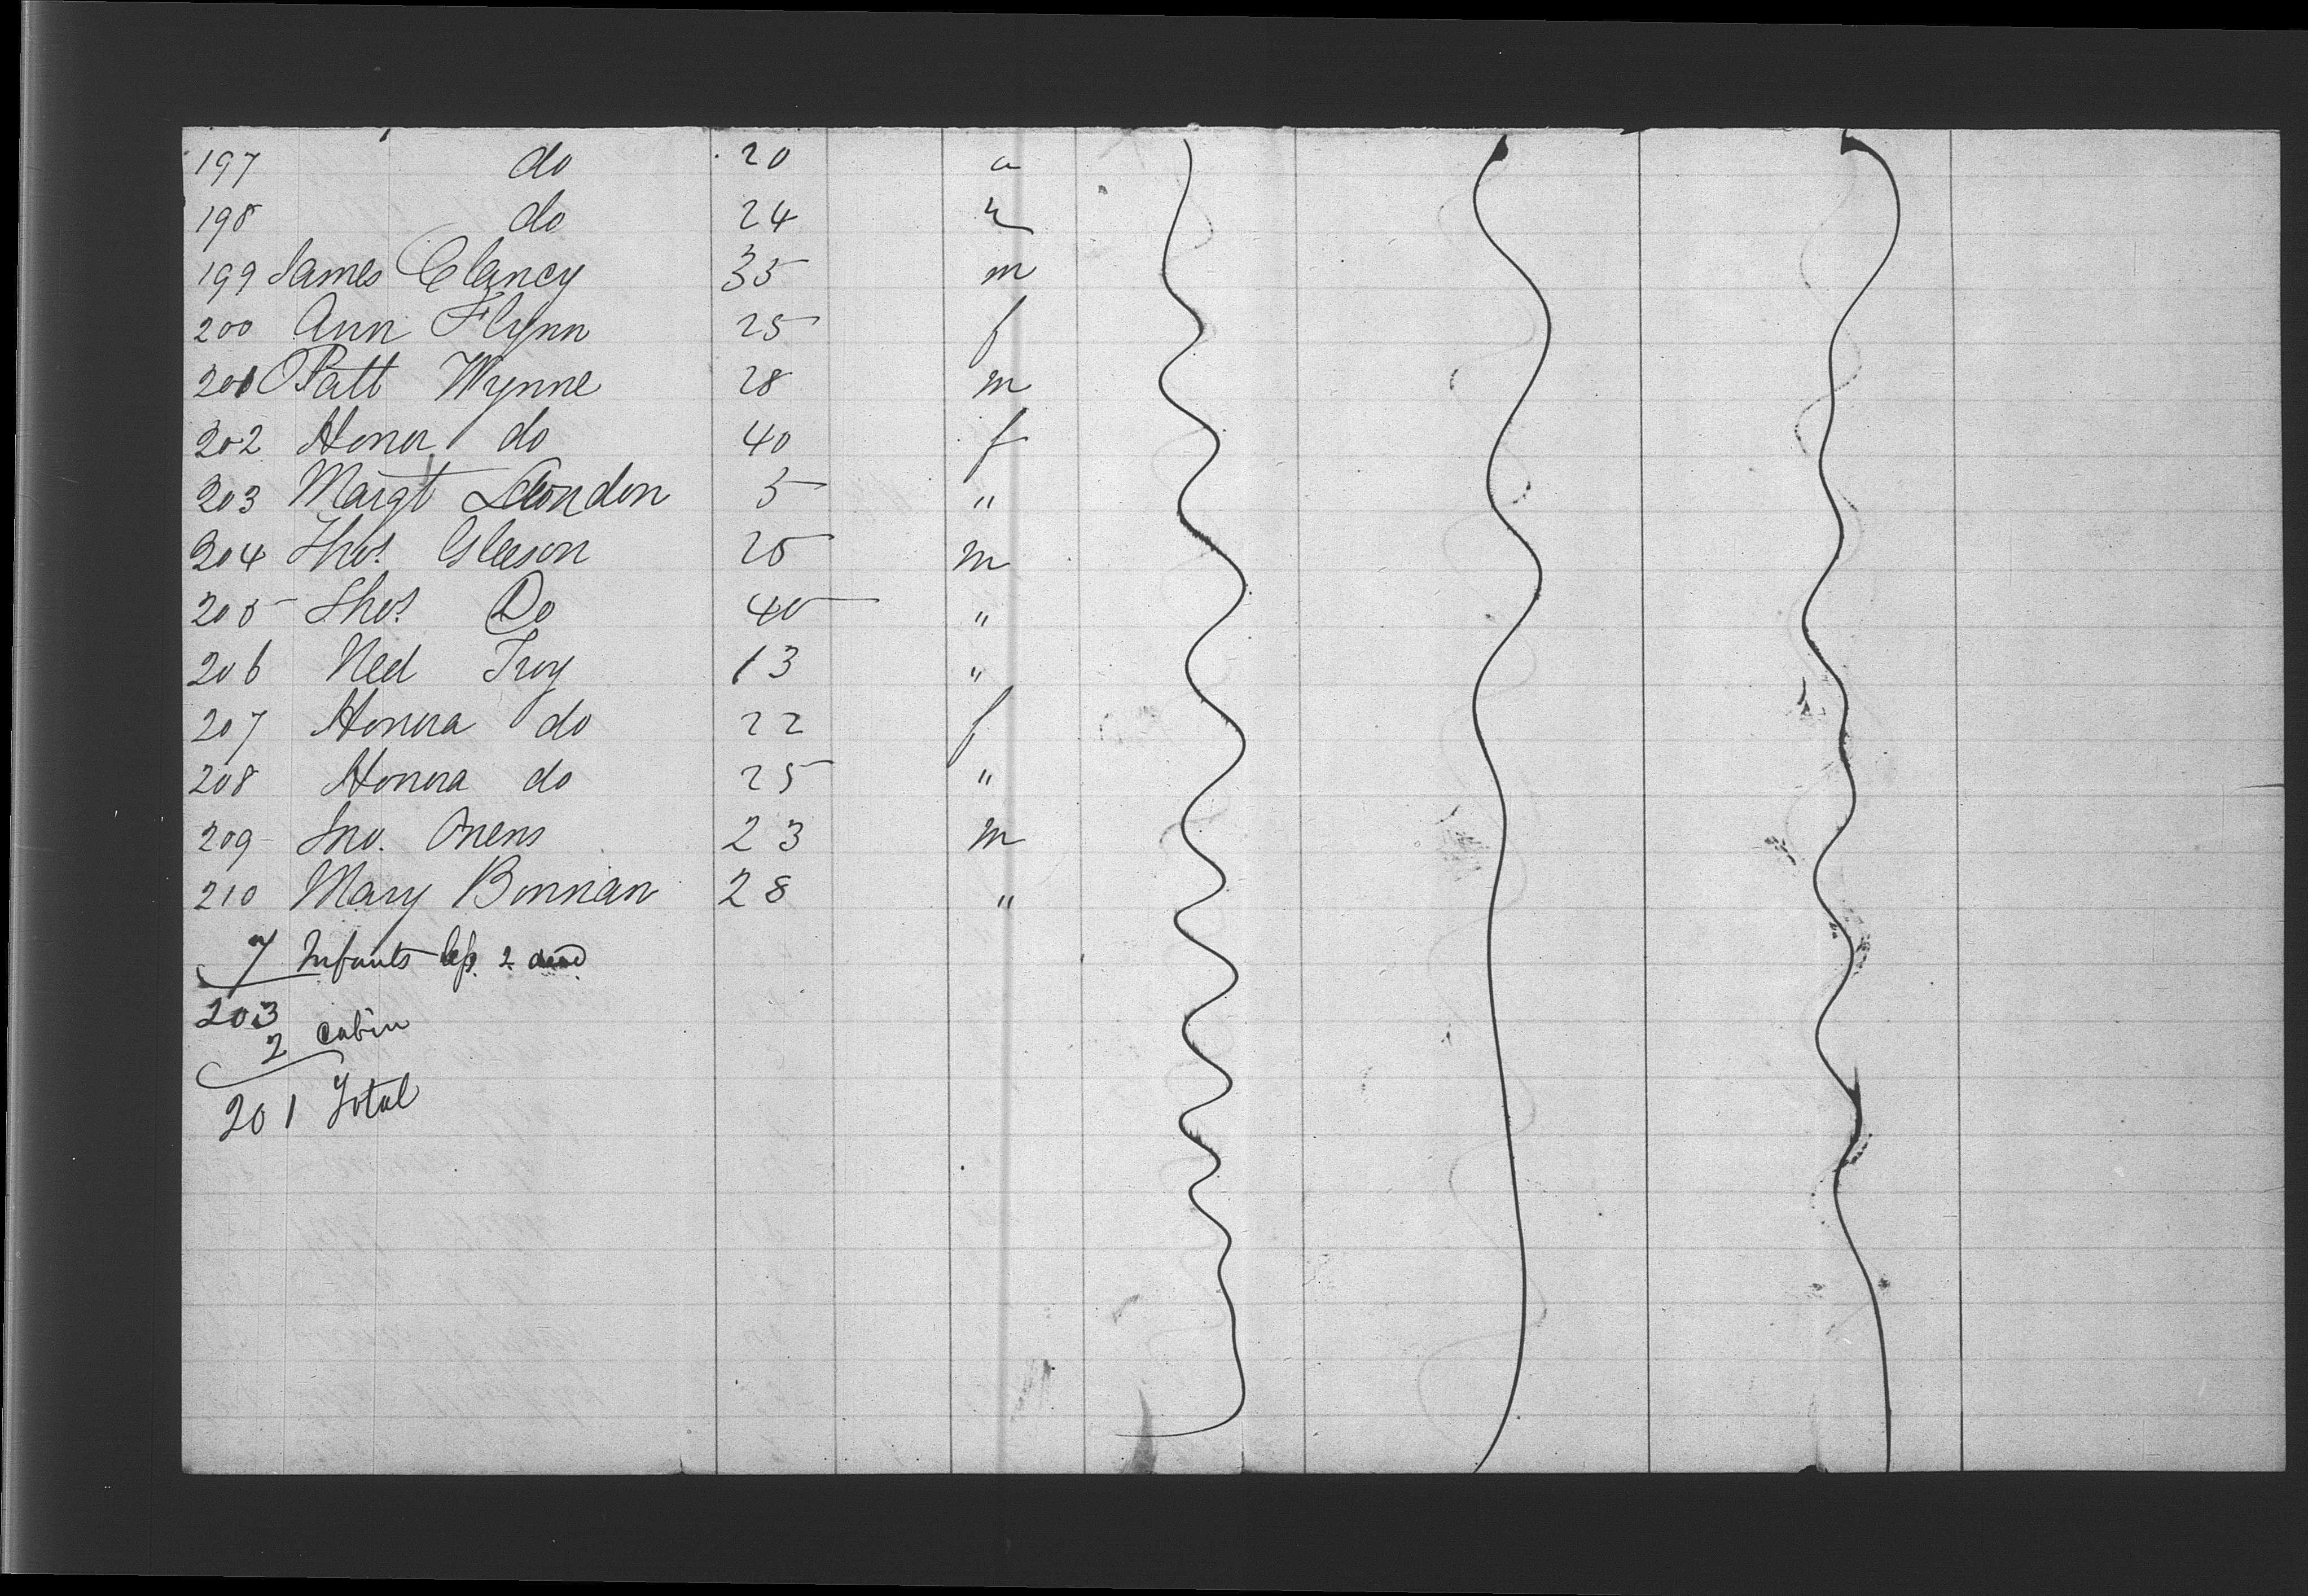 197 do 20 "
198 do 24 "
199 James Clancy 35 m
200 Ann Flynn 25 f
201 Patt Wynne 28 m
202 Honor do 40 f
203 Margt Condon 5 "
204 Thos. Gleeson 25 m
205 Thos. Do 45 "
206 Ned Troy 13 "
207 Honora do 22 f
208 Honora do 25 "
209 Jno. Owens 23 m
210 Mary Bonnan 28 "
7 Infants less 2 dead
203
2 cabin
201 Total